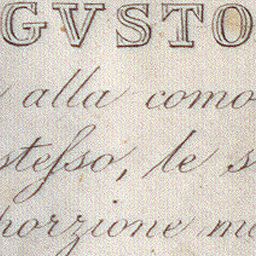 GVSTO
alla como
stesso, le s
porzione ma